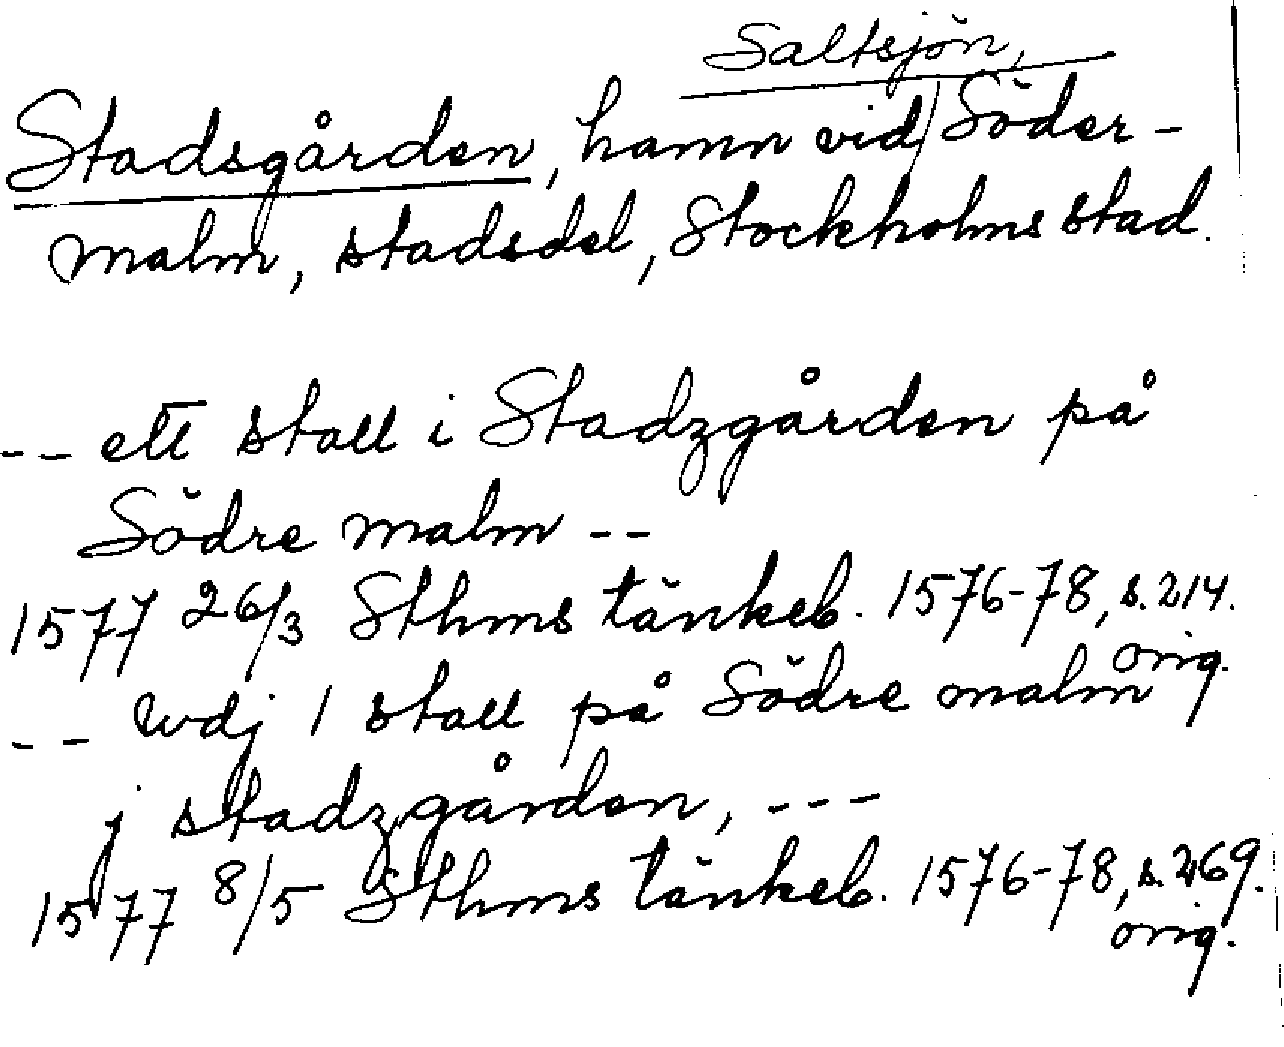 Saltsjön,
Stadsgården, hamn vid Söder-
malm, stadsdel, Stockholms stad.
-- ett stall i Stadzgården på
Södre malm --
1577 26/3 Sthms tänkeb. 1576-78, s. 214.
orig.
-- wdj 1 stall på Södre malm
j stadzgården, ---
1577 8/5 Sthms tänkeb. 1576-78, s. 269.
orig.